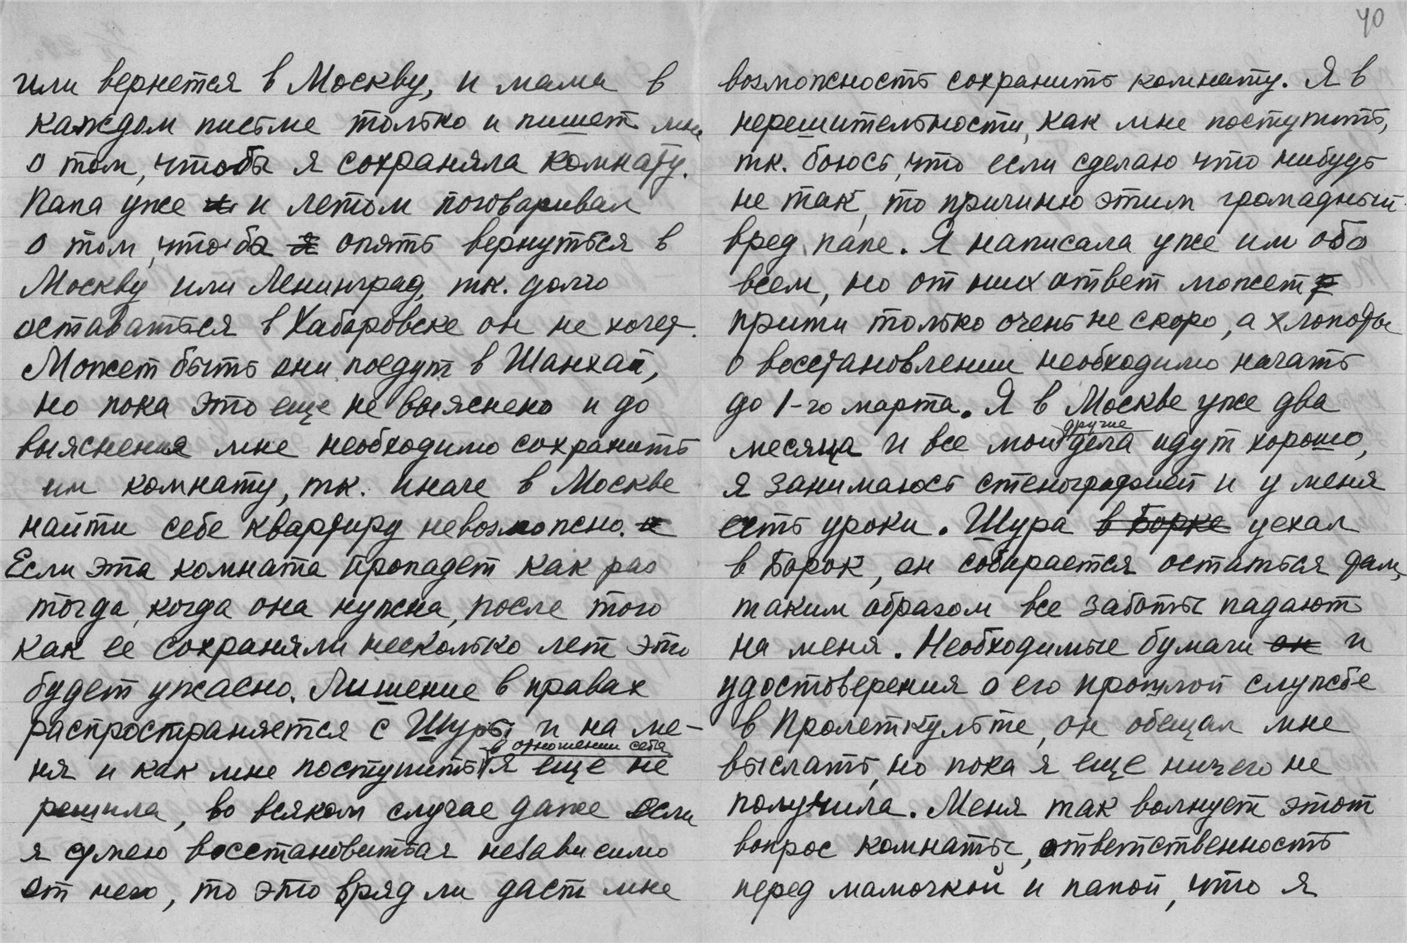 или вернется в Москву, и мама в
каждом письме только и пишет мне
о том, чтобы я сохраняла комнату.
Папа уже и летом поговаривал
о том, чтобы я опять вернуться в
Москву или Ленинград, т.к. долго
оставаться в Хабаровске он не хочет.
Может быть они поедут в Шанхай,
но пока это еще не выяснено и до
выяснения мне необходимо сохранить
им комнату, т.к. иначе в Москве
найти себе квартиру невозможно. и
Если эта комната пропадет как раз
тогда, когда она нужна, после того
как ее сохраняли несколько лет это
будет ужасно. Лишение в правах
распространяется с Шуры и на ме-
в отношении себя
ня и как мне поступить я еще не
решила, во всяком случае даже если
я сумею восстановиться независимо
от него, то это вряд ли даст мне
40
возможность сохранить комнату. Я в
нерешительности, как мне поступить,
т.к. боюсь, что если сделаю что нибудь
не так, то причиню этим громадный
вред папе. Я написала уже им обо
всем, но от них ответ может
прити только очень не скоро, а хлопоты
о восстановлении необходимо начать
до 1-го марта. Я в Москве уже два
другие
месяца и все мои дела идут хорошо,
я занимаюсь стенографией и у меня
есть уроки. Шура в Борке уехал
в Борок, он собирается остаться там,
таким образом все заботы падают
на меня. Необходимые бумаги он и
удостоверения о его прошлой службе
в Пролеткульте, он обещал мне
выслать, но пока я еще ничего не
получила. Меня так волнует этот
вопрос комнаты, ответственность
перед мамочкой и папой, что я